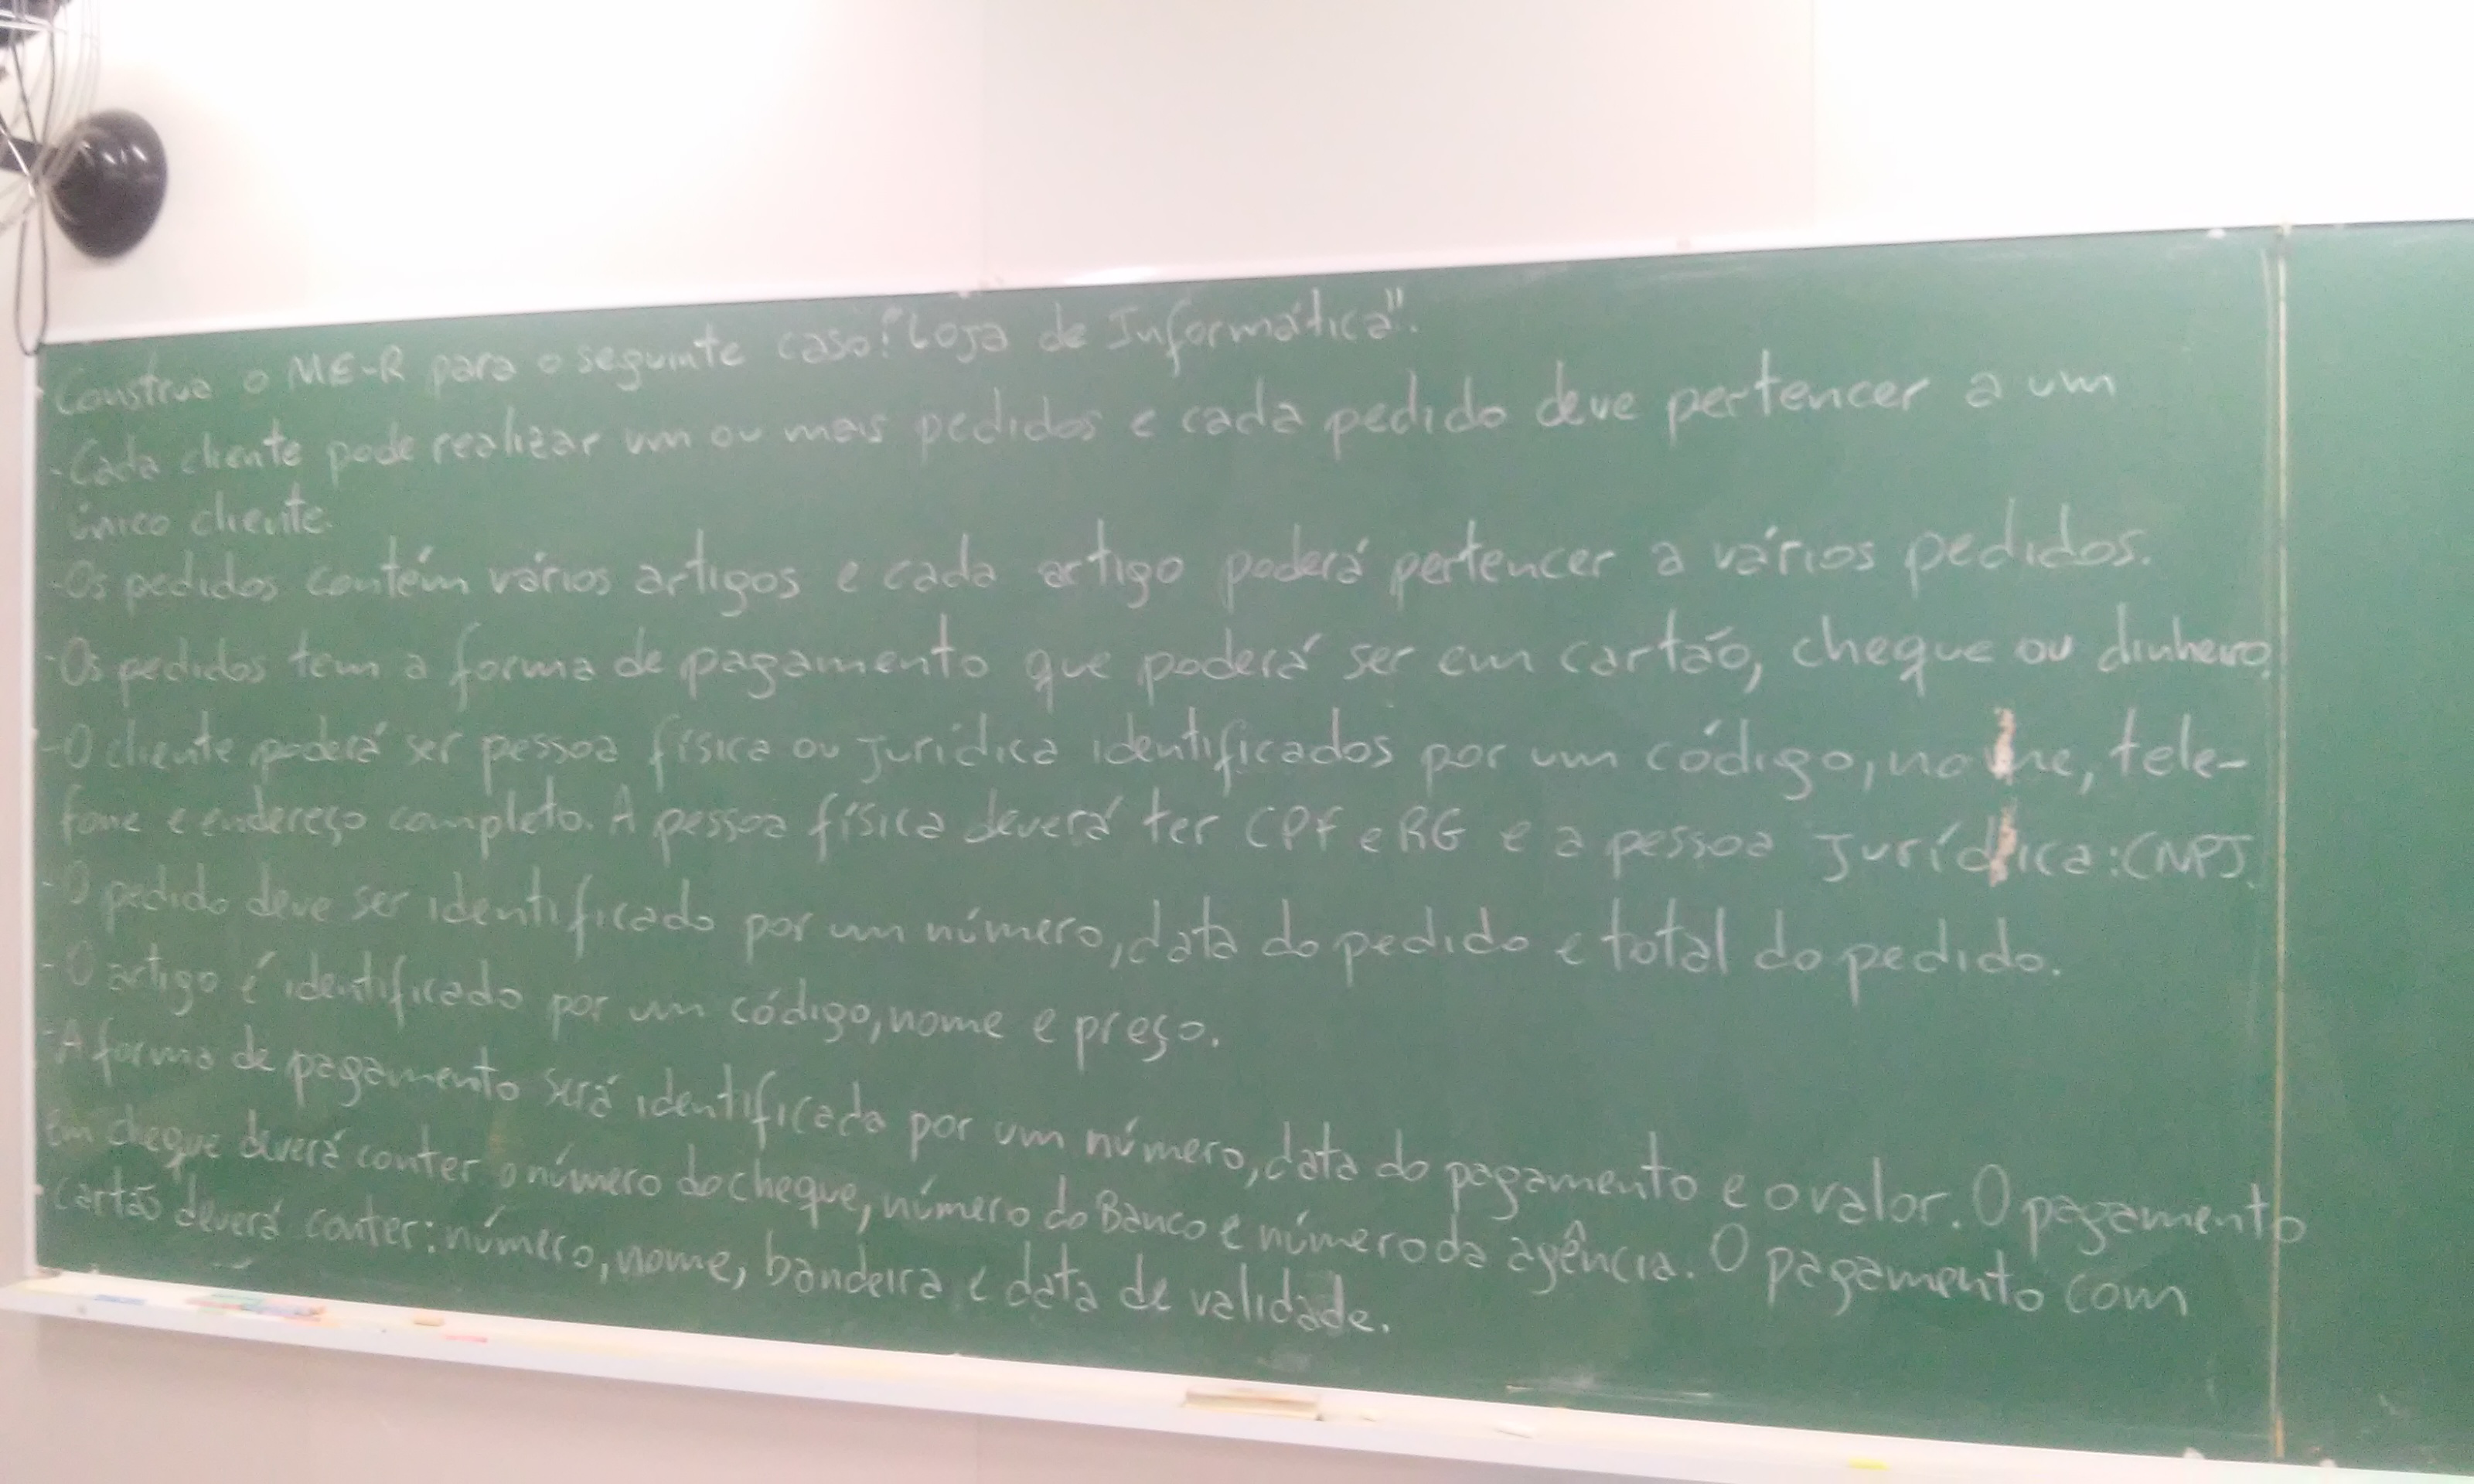 Construa o ME-R para o seguinte caso: "Loja de Informática".
-Cada cliente pode realizar um ou mais pedidos e cada pedido deve pertencer a um
único cliente.
-Os pedidos contém vários artigos e cada artigo poderá pertencer a vários pedidos.
-Os pedidos tem a forma de pagamento que poderá ser em cartão, cheque ou dinheiro.
-O cliente poderá ser pessoa física ou jurídica identificados por um código, nome, tele-
fone e endereço completo. A pessoa física deverá ter CPF e RG e a pessoa jurídica: CNPJ.
-O pedido deve ser identificado por um número, data do pedido e total do pedido.
-O artigo é identificado por um código, nome e preço.
-A forma de pagamento será identificada por um número, data do pagamento e o valor. O pagamento
em cheque deverá conter o número do cheque, número do Banco e número da agência. O pagamento com
cartão deverá conter: número, nome, bandeira e data de validade.